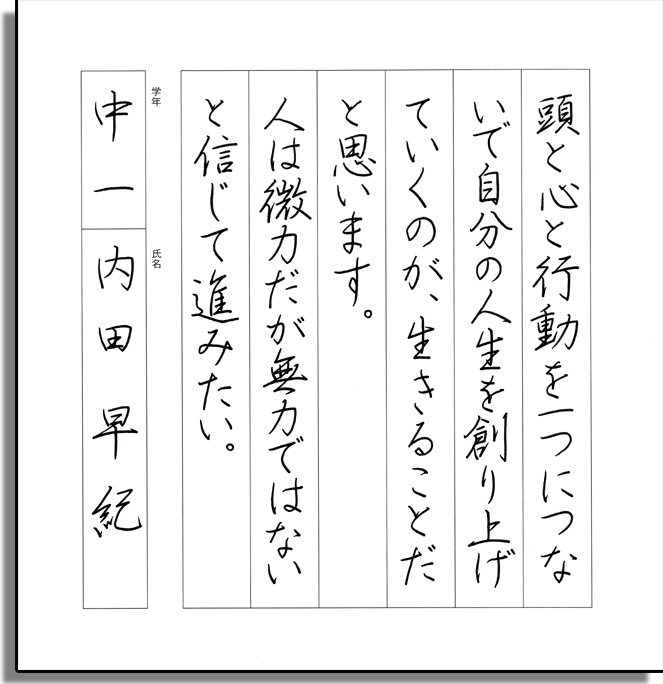 頭と心と行動を一つにつな
いで自分の人生を創り上げ
ていくのが、生きることだ
と思います。
人は微力だが無力ではない
と信じて進みたい。
学年
中一
氏名
内田早紀